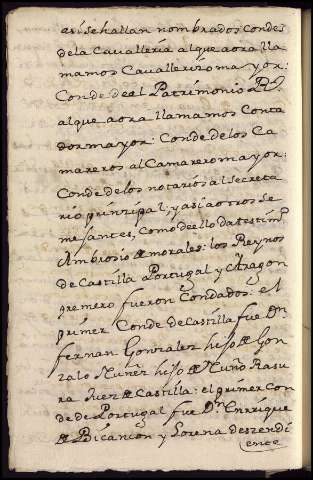 asi se hallan nombrados Condes
de la Cavalleria al que aora lla
mamos Cavallerizo mayor:
Conde de el Patrimonio Rl.
al que aora llamamos Conta
dor mayor: Conde de los Ca
mareros al Camarero mayor:
Conde de los notarios al secreta
rio prinzipal, y asi a otros se
mejantes, como de ello da testimo
Ambrosio de morales: los Reynos
de Castilla Portugal y Aragon
primero fueron Condados: el
primer Conde de Castilla fue Dn
fernan Gonzalez hijo de Gon
zalo Nuñez hijo de Nuño Rasu
ra Juez de Castilla: el primer Con
de de Portugal fue Dn. Enrrique
de Bicancon y Lorena deszendi
ente